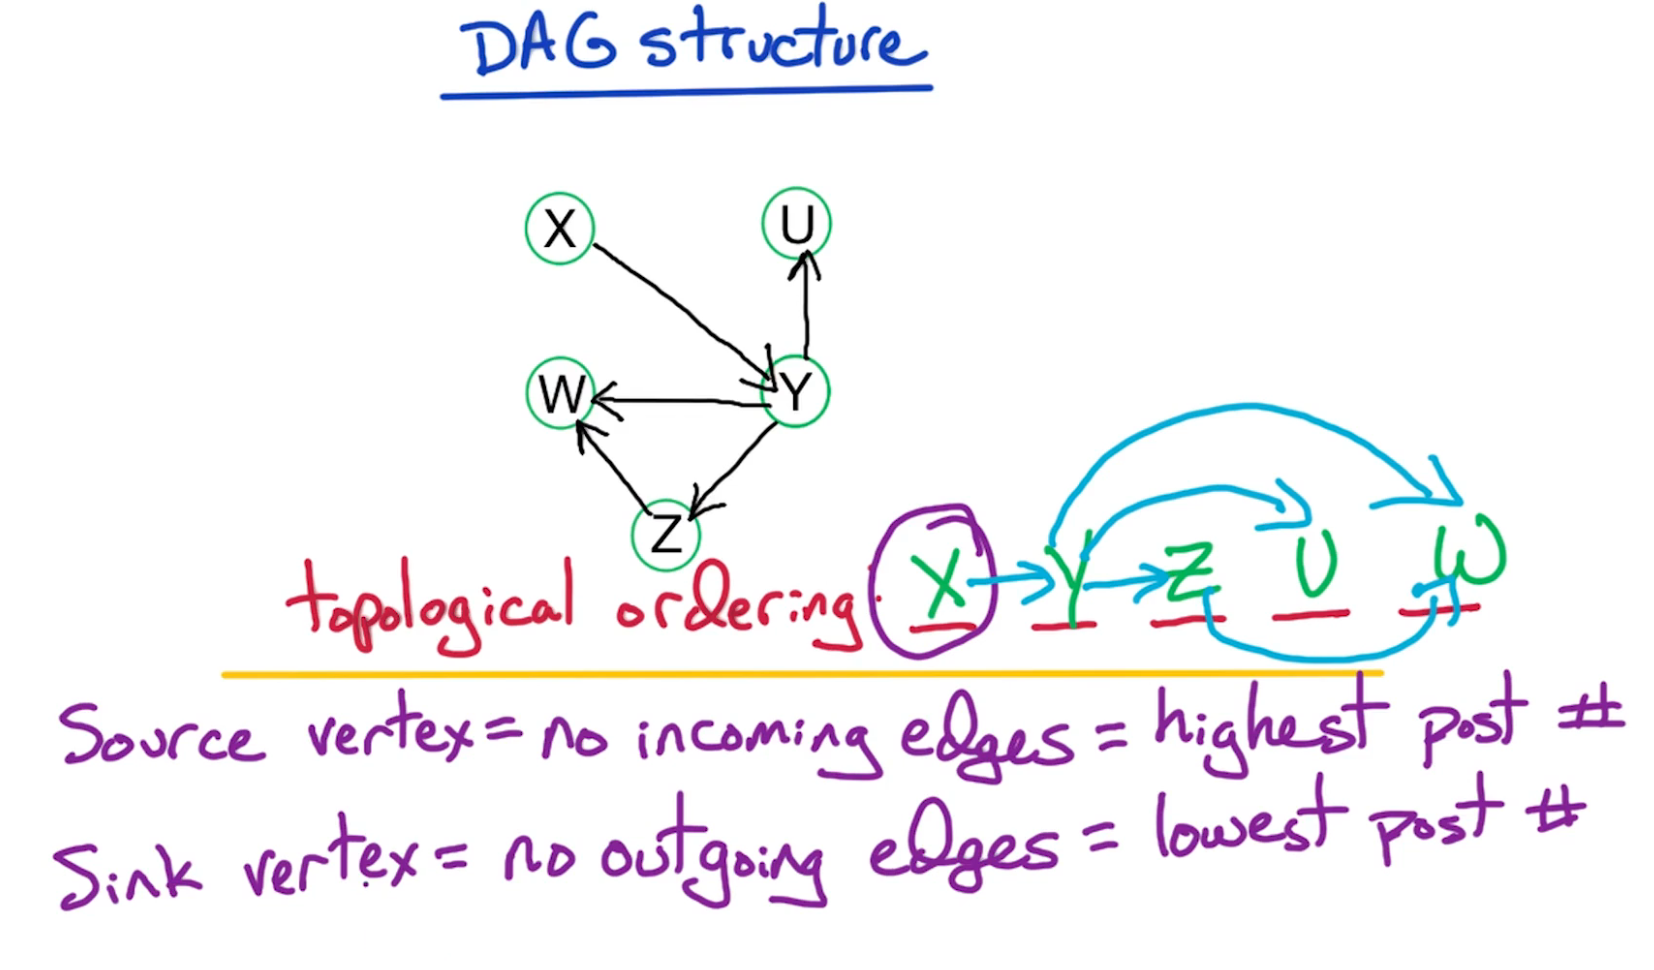 DAG structure
X U
W Y
Z
topological ordering: X Y Z U W
Source vertex = no incoming edges = highest post #
Sink vertex = no outgoing edges = lowest post #